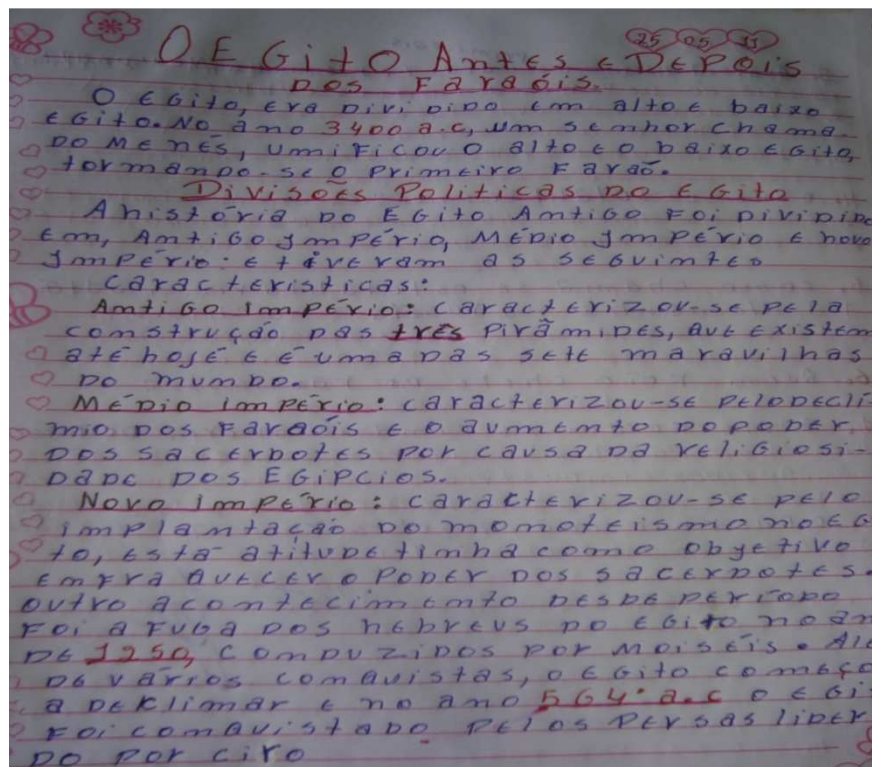 25 05 11
O EGito Antes E DEPois
Dos Faraóis.
O EGito, Era Dividido Em alto E baixo
EGito. No ano 3400 a.c, um senhor chama-
Do Menés, Umificou o alto E o baixo EGito,
tormando-se o Primeiro Faraó.
Divisões Politicas Do EGito
A história Do EGito Amtigo Foi Dividido
Em, Amtigo Império, Médio Império E novo
Império: E tiveram as seguimtes
características:
Amtigo império: caracterizou-se pela
comstrução Das três Pirâmides, que Existem
até hojé E é uma Das sete maravilhas
Do mumdo.
Médio império: caracterizou-se pelo Decli-
mio Dos Faraóis E o aumemto Do poder
Dos sacerdotes por causa Da religiosi-
Dade Dos EGipcios.
Novo império: caracterizou-se pelo
implamtação Do momoteísmo no EG
to, Esta atitude timha como obgetivo
Emfraquecer o Poder Dos sacerdotes.
Outro acomtecimemto Desde período
Foi a Fuga Dos hebreus Do EGito no an
DE 1250, Comduzidos por Moiséis. Alé
DE vários comquistas, o EGito começo
a Deklimar E no ano 564 a.c o EGi
Foi comquistado pelos Persas lider
Do por ciro